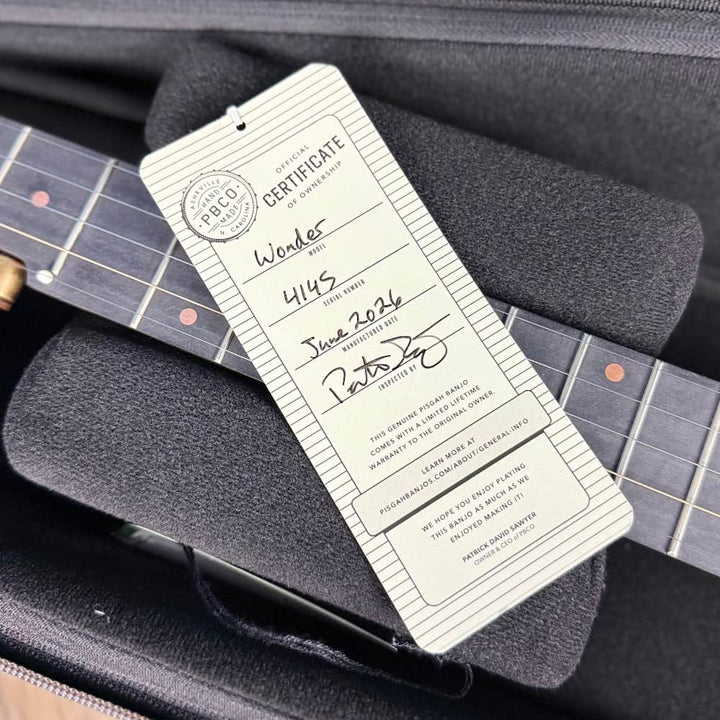 ASHEVILLE
HAND
PBCO.
MADE
N. CAROLINA
OFFICIAL
CERTIFICATE
OF OWNERSHIP
Wonder
MODEL
4145
SERIAL NUMBER
June 2026
MANUFACTURED DATE
INSPECTED BY
THIS GENUINE PISGAH BANJO
COMES WITH A LIMITED LIFETIME
WARRANTY TO THE ORIGINAL OWNER.
LEARN MORE AT
PISGAHBANJOS.COM/ABOUT/GENERAL-INFO
WE HOPE YOU ENJOY PLAYING
THIS BANJO AS MUCH AS WE
ENJOYED MAKING IT!
PATRICK DAVID SAWYER
OWNER & CEO of PBCO